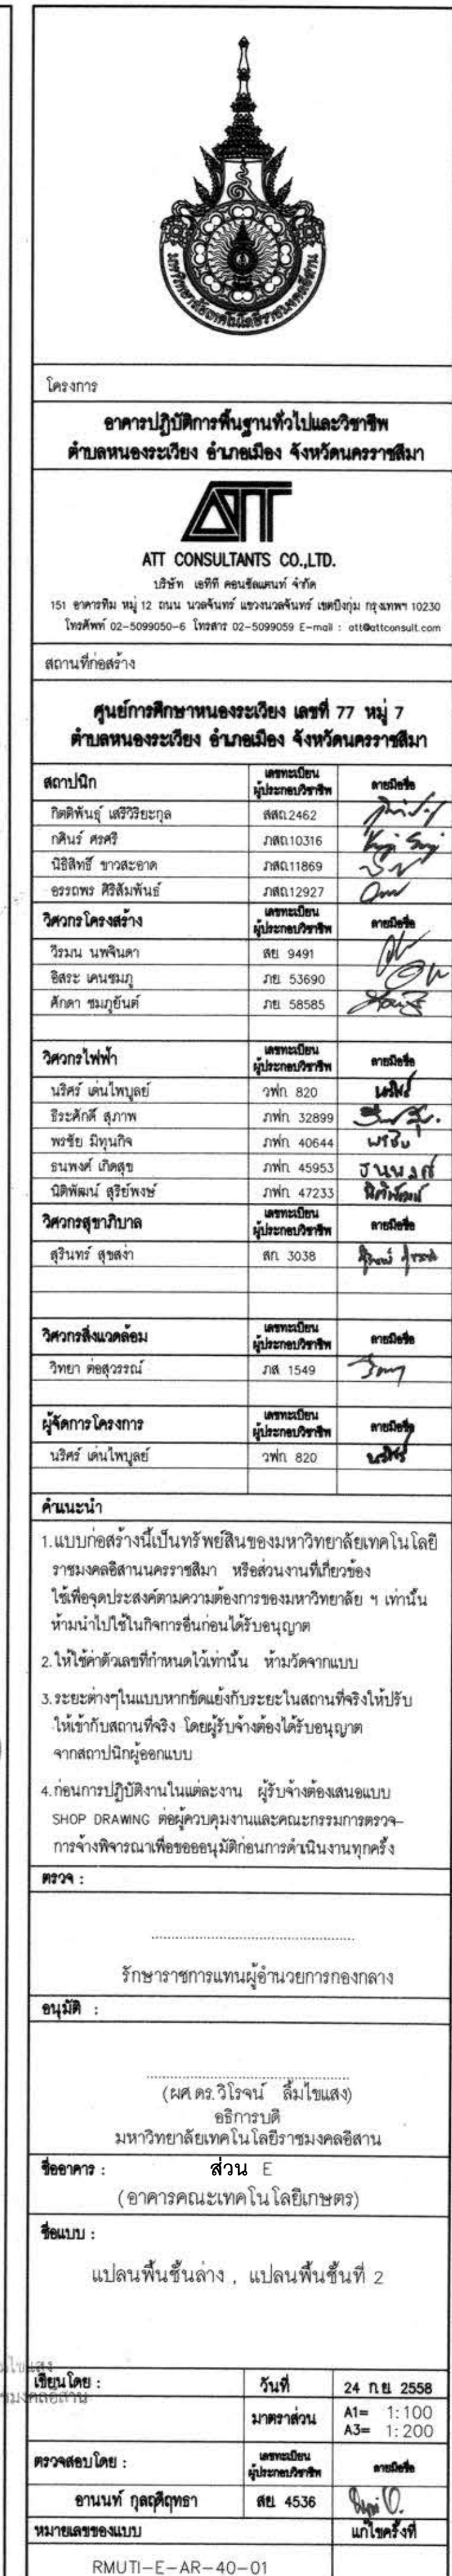 มหาวิทยาลัยเทคโนโลยีราชมงคลอีสาน
โครงการ
อาคารปฏิบัติการพื้นฐานทั่วไปและวิชาชีพ
ตำบลหนองระเวียง อำเภอเมือง จังหวัดนครราชสีมา
ATT
ATT CONSULTANTS CO.,LTD.
บริษัท เอทีที คอนซัลแตนท์ จำกัด
151 อาคารทิม หมู่ 12 ถนน นวลจันทร์ แขวงนวลจันทร์ เขตบึงกุ่ม กรุงเทพฯ 10230
โทรศัพท์ 02-5099050-6 โทรสาร 02-5099059 E-mail : att@attconsult.com
สถานที่ก่อสร้าง
ศูนย์การศึกษาหนองระเวียง เลขที่ 77 หมู่ 7
ตำบลหนองระเวียง อำเภอเมือง จังหวัดนครราชสีมา
สถาปนิก เลขทะเบียนผู้ประกอบวิชาชีพ ลายมือชื่อ
กิตติพันธุ์ เสรีวิริยะกุล สสถ.2462
กศินร์ ศรศรี ภสถ.10316
นิธิสิทธิ์ ขาวสะอาด ภสถ.11869
อรรถพร ศิริสัมพันธ์ ภสถ.12927
วิศวกรโครงสร้าง เลขทะเบียนผู้ประกอบวิชาชีพ ลายมือชื่อ
วีรมน นพจินดา สย. 9491
อิสระ เคนชมภู ภย. 53690
ศักดา ชมภูยันต์ ภย. 58585
วิศวกรไฟฟ้า เลขทะเบียนผู้ประกอบวิชาชีพ ลายมือชื่อ
นริศร์ เด่นไพบูลย์ วฟก. 820 นริศร์
ธีระศักดิ์ สุภาพ ภฟก. 32899
พรชัย มิทุนกิจ ภฟก. 40644 พรชัย
ธนพงศ์ เกิดสุข ภฟก. 45953 ธนพงศ์
นิติพัฒน์ สุรีย์พงษ์ ภฟก. 47233 นิติพัฒน์
วิศวกรสุขาภิบาล เลขทะเบียนผู้ประกอบวิชาชีพ ลายมือชื่อ
สุรินทร์ สุขสง่า สก. 3038
วิศวกรสิ่งแวดล้อม เลขทะเบียนผู้ประกอบวิชาชีพ ลายมือชื่อ
วิทยา ต่อสุวรรณ์ ภส. 1549
ผู้จัดการโครงการ เลขทะเบียนผู้ประกอบวิชาชีพ ลายมือชื่อ
นริศร์ เด่นไพบูลย์ วฟก. 820 นริศร์
คำแนะนำ
1. แบบก่อสร้างนี้เป็นทรัพย์สินของมหาวิทยาลัยเทคโนโลยี
ราชมงคลอีสานนครราชสีมา หรือส่วนงานที่เกี่ยวข้อง
ใช้เพื่อจุดประสงค์ตามความต้องการของมหาวิทยาลัย ฯ เท่านั้น
ห้ามนำไปใช้ในกิจการอื่นก่อนได้รับอนุญาต
2. ให้ใช้ค่าตัวเลขที่กำหนดไว้เท่านั้น ห้ามวัดจากแบบ
3. ระยะต่างๆในแบบหากขัดแย้งกับระยะในสถานที่จริงให้ปรับ
ให้เข้ากับสถานที่จริง โดยผู้รับจ้างต้องได้รับอนุญาต
จากสถาปนิกผู้ออกแบบ
4. ก่อนการปฏิบัติงานในแต่ละงาน ผู้รับจ้างต้องเสนอแบบ
SHOP DRAWING ต่อผู้ควบคุมงานและคณะกรรมการตรวจ-
การจ้างพิจารณาเพื่อขอออนุมัติก่อนการดำเนินงานทุกครั้ง
ตรวจ :
รักษาราชการแทนผู้อำนวยการกองกลาง
อนุมัติ :
(ผศ.ดร.วิโรจน์ ลิ้มไขแสง)
อธิการบดี
มหาวิทยาลัยเทคโนโลยีราชมงคลอีสาน
ชื่ออาคาร : ส่วน E
(อาคารคณะเทคโนโลยีเกษตร)
ชื่อแบบ :
แปลนพื้นชั้นล่าง , แปลนพื้นชั้นที่ 2
เขียนโดย : วันที่ 24 ก.ย. 2558
มาตราส่วน A1= 1:100
A3= 1:200
ตรวจสอบโดย : เลขทะเบียนผู้ประกอบวิชาชีพ ลายมือชื่อ
อานนท์ กุลฤดีฤทธา สย. 4536
หมายเลขของแบบ แก้ไขครั้งที่
RMUTI-E-AR-40-01